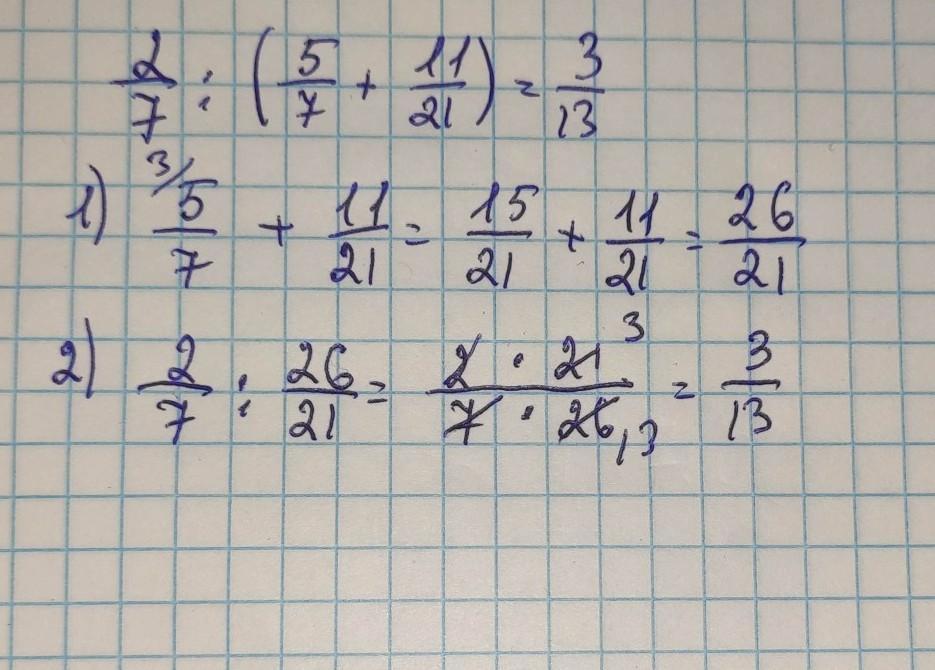 2/7 : (5/7 + 11/21) = 3/13
1) 3/ 5/7 + 11/21 = 15/21 + 11/21 = 26/21
2) 2/7 : 26/21 = 2 · 21 3 / 7 · 26 13 = 3/13